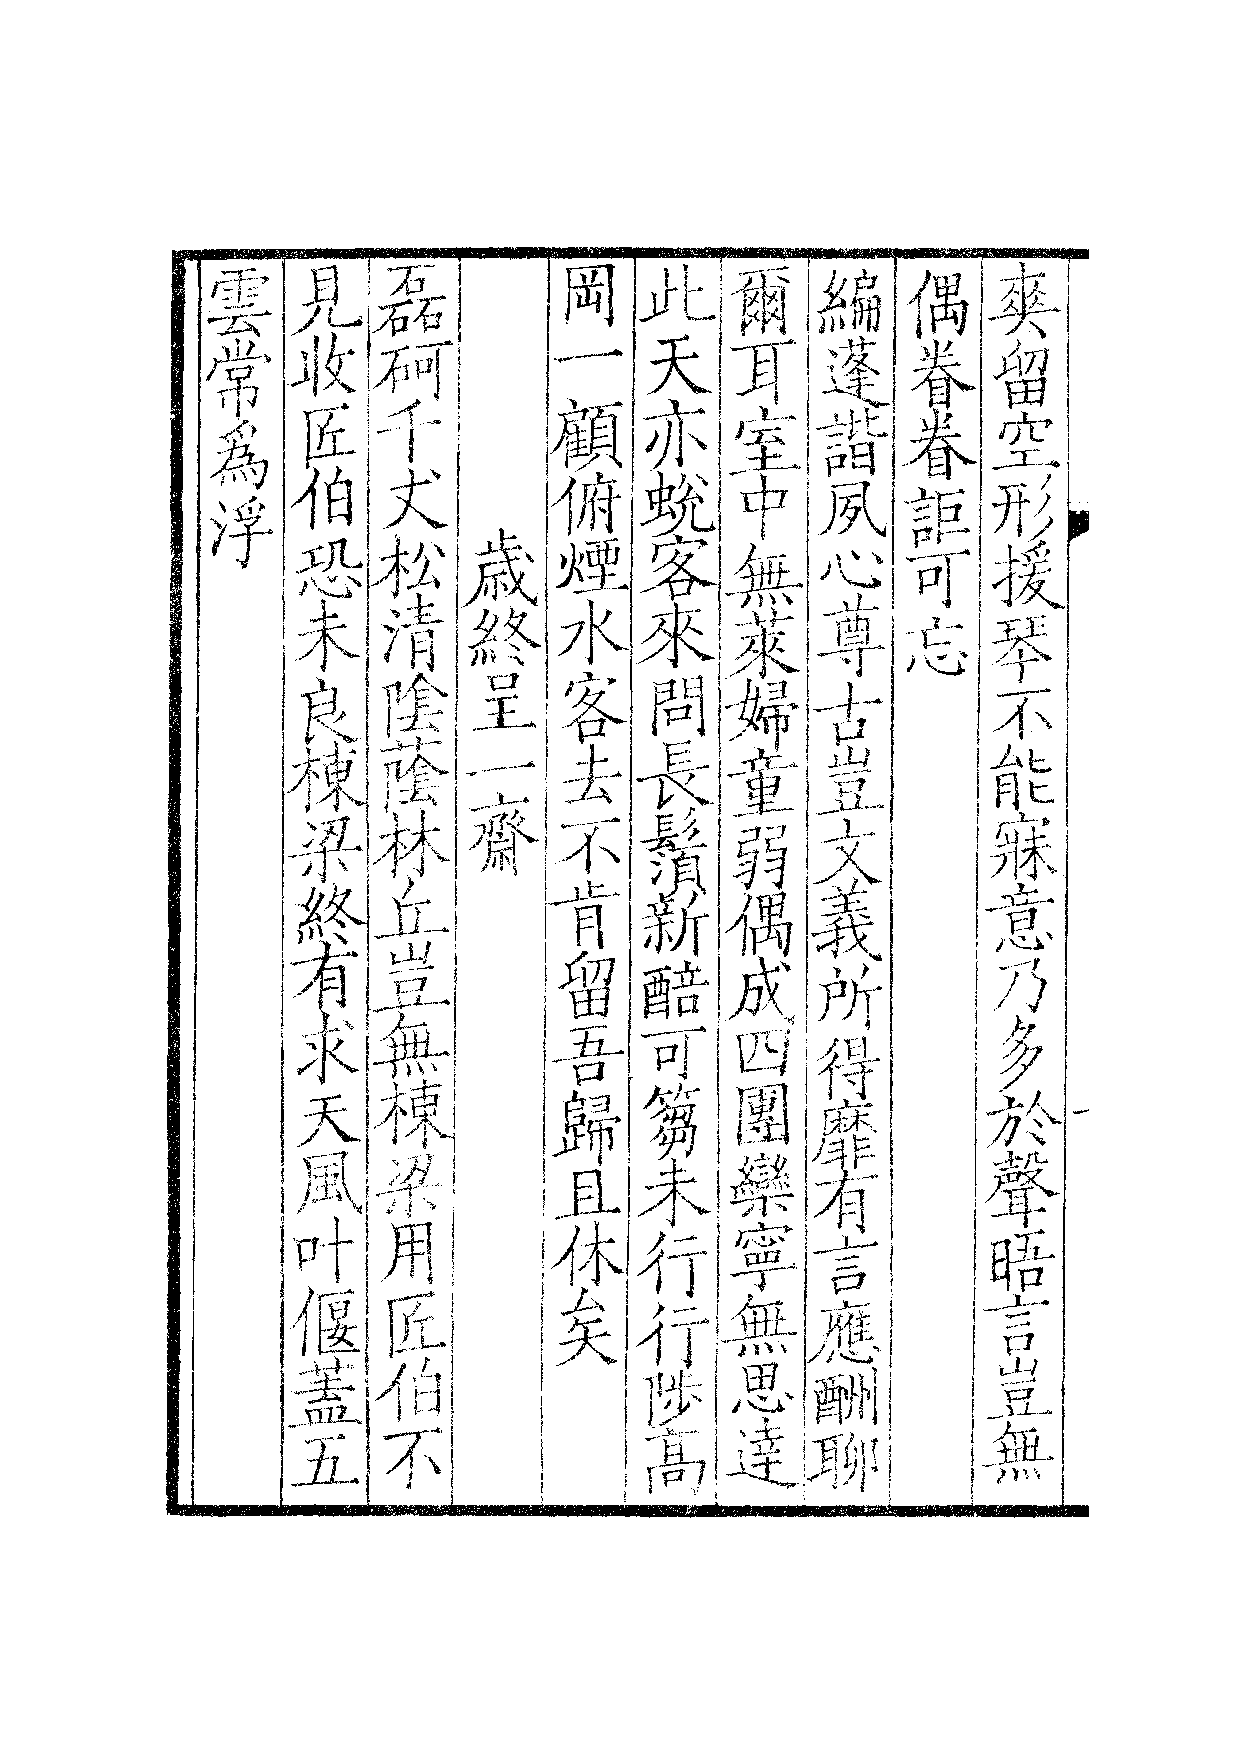 爽留空形援琴不能寐意乃多於聲晤言豈無
偶眷眷詎可忘
編蓬諧夙心尊古豈文義所得靡有言應酬聊
爾耳室中無萊婦童弱偶成四團欒寧無思達
此天亦蛻客來問長鬚新醅可篘未行行陟高
岡一顧俯煙水客去不肯留吾歸且休矣
歲終呈一齋
磊砢千丈松清陰蔭林丘豈無棟梁用匠伯不
見收匠伯恐未良棟梁終有求天風叶偃蓋五
雲常為浮